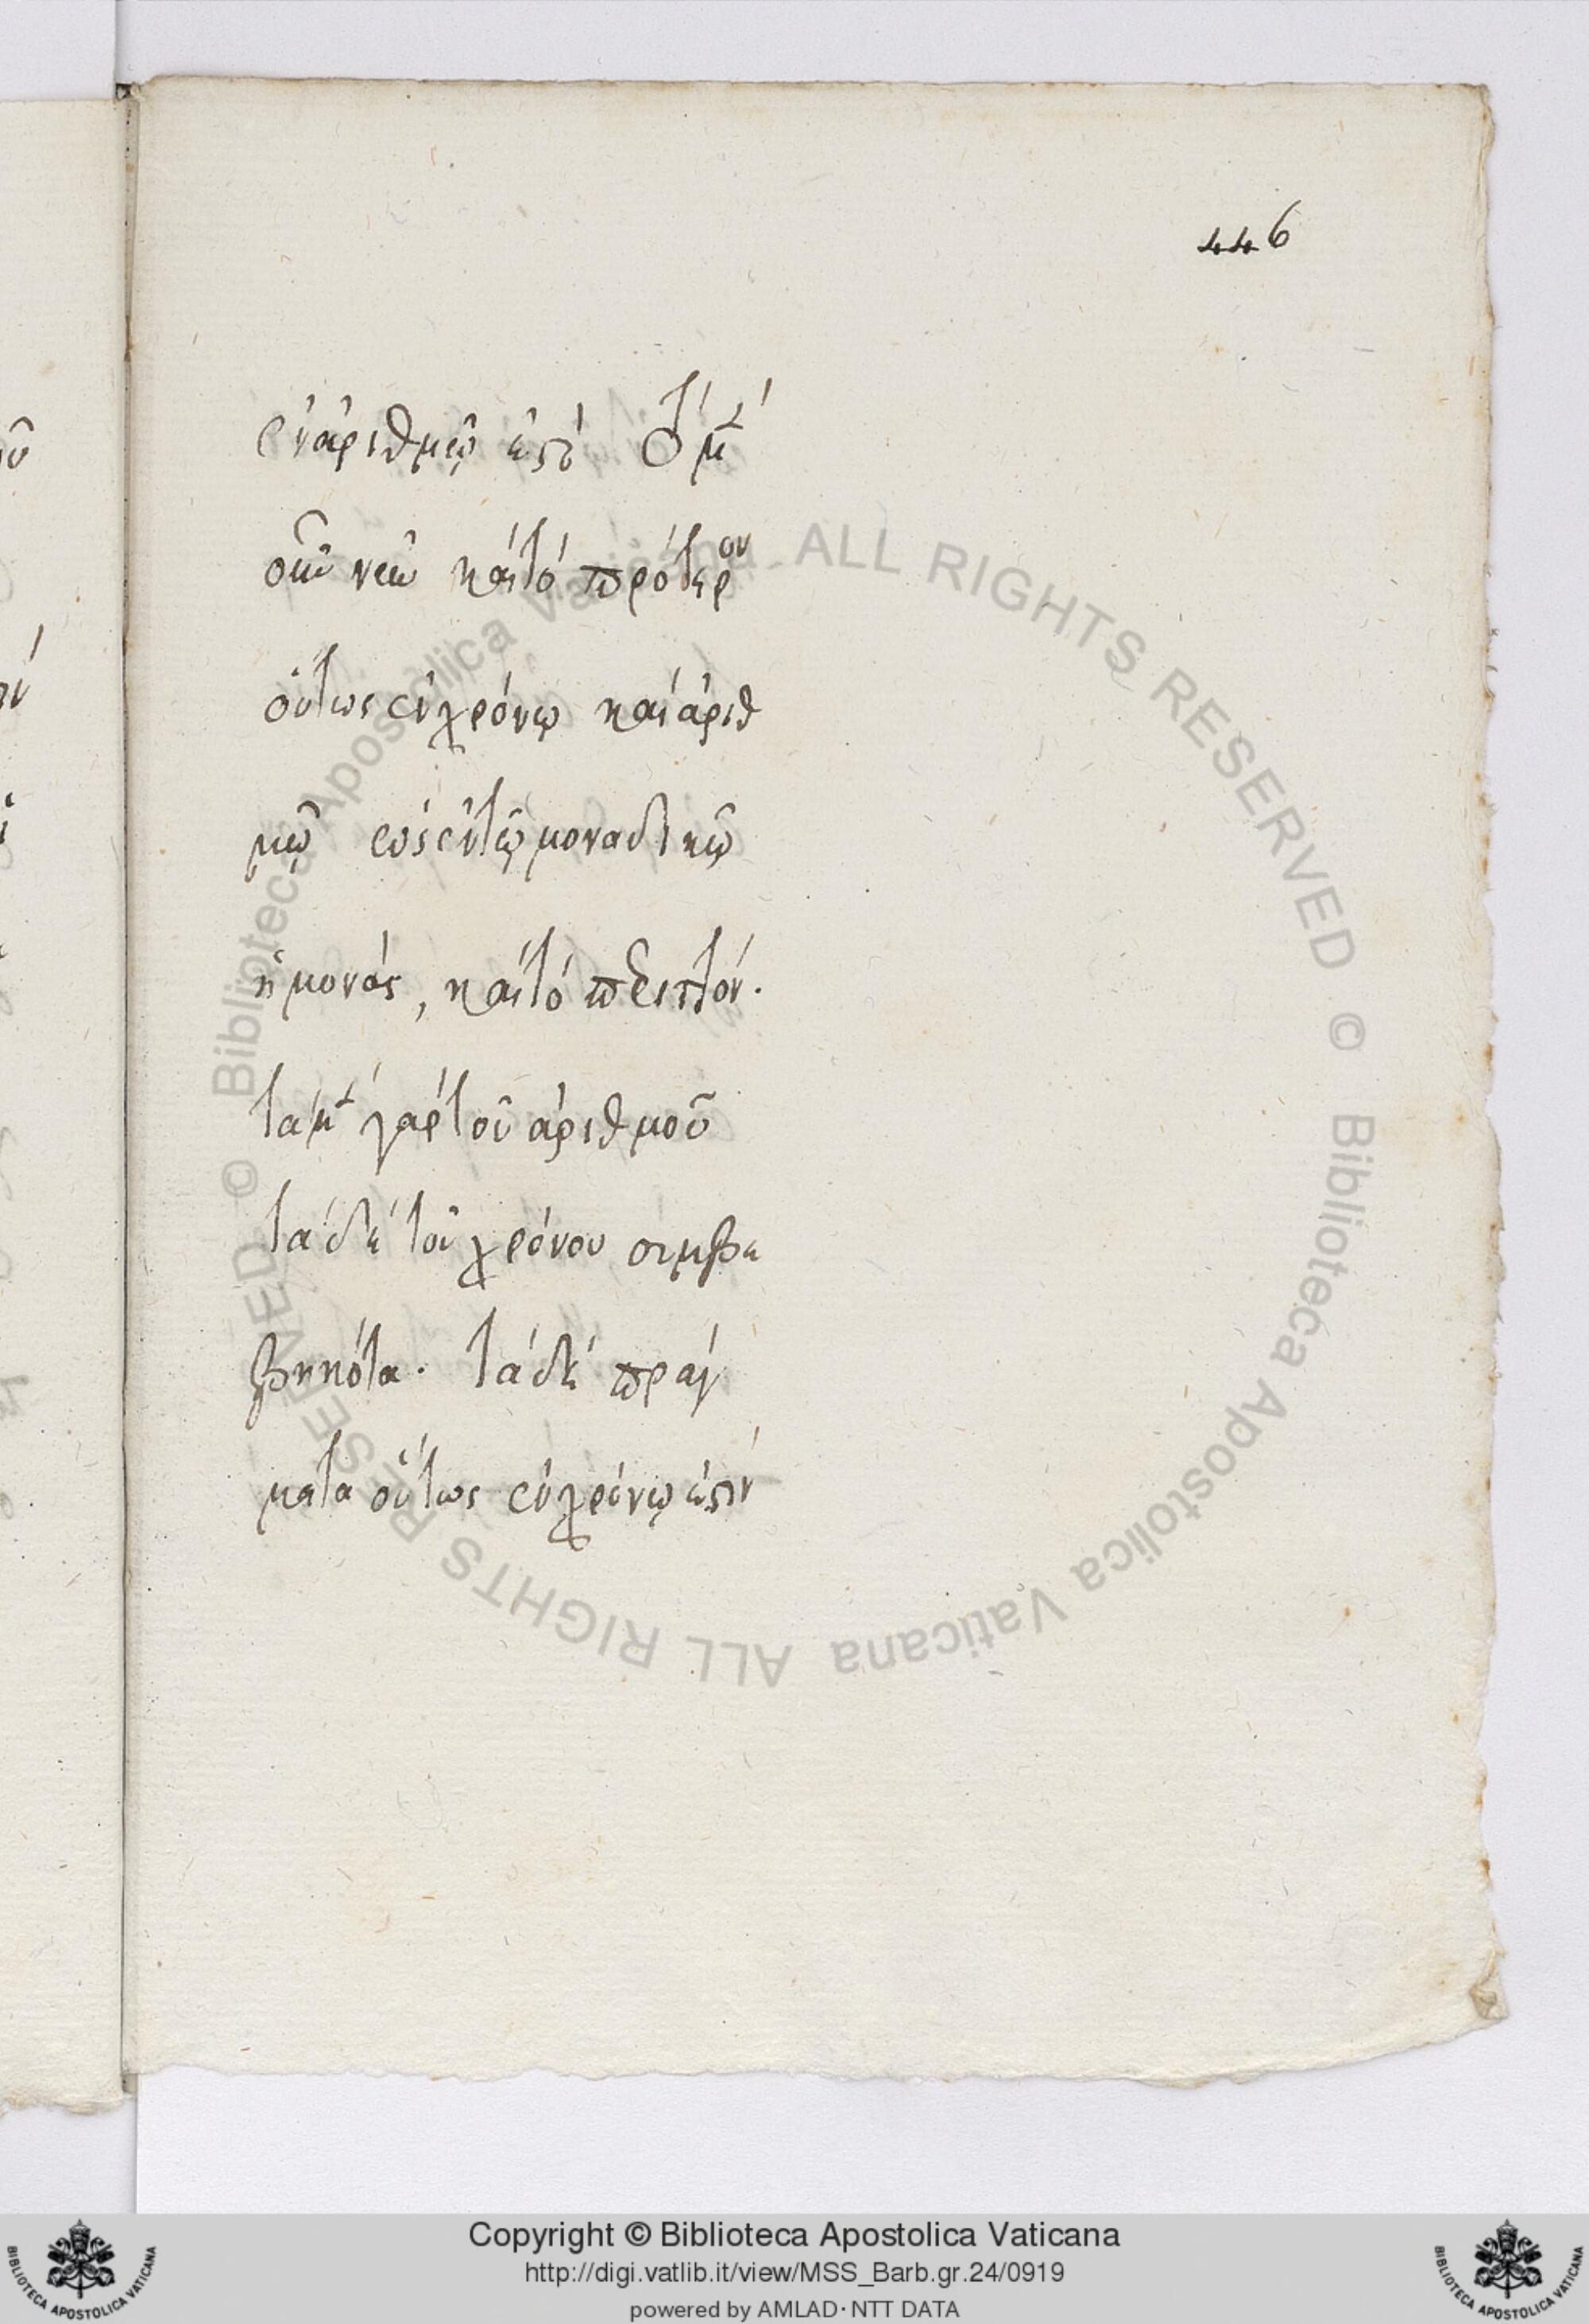 446
ἐν ἀριθμῷ ἐστί τὸ μὲν
οὖν νῦν καὶ τὸ πρότερον
οὕτως ἐν χρόνῳ καὶ ἀριθ
μῷ ὡς ἐν τῷ μοναδικῷ
ἡ μονάς, καὶ τὸ περιττόν.
τὰ μὲν γὰρ τοῦ ἀριθμοῦ
τὰ δὲ τοῦ χρόνου συμβε
βηκότα. τὰ δὲ πράγ
ματα οὕτως ἐν χρόνῳ ἐστίν
© Biblioteca Apostolica Vaticana ALL RIGHTS RESERVED © Biblioteca Apostolica Vaticana ALL RIGHTS RESERVED
Copyright © Biblioteca Apostolica Vaticana
http://digi.vatlib.it/view/MSS_Barb.gr.24/0919
powered by AMLAD·NTT DATA
BIBLIOTECA APOSTOLICA VATICANA
BIBLIOTECA APOSTOLICA VATICANA